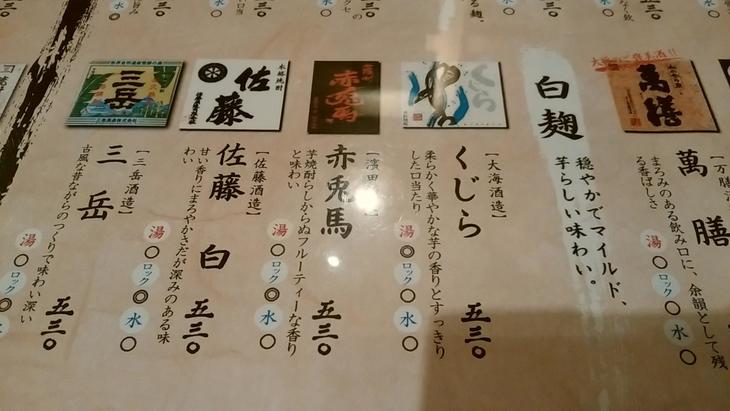 萬膳
【万膳酒
まろみのある飲み口に、余韻として残
る香ばしさ
湯○ロック○水○
白麹
穏やかでマイルド、
芋らしい味わい。
くじら
【大海酒造】
くじら
柔らかく華やかな芋の香りとすっきり
した口当たり
湯◎ロック○水○
五三〇
赤兎馬
【濱田
赤兎馬
芋焼酎らしからぬフルーティーな香り
と味わい
湯○ロック◎水○
五三〇
本格焼酎
佐藤
【佐藤酒造】
佐藤 白
甘い香りにまろやかさだが深みのある味
わい
湯○ロック◎水○
五三〇
三岳
三岳酒造株式会社
【三岳酒造】
三岳
古風な昔ながらのつくりで味わい深い
湯○ロック◎水○
五三〇